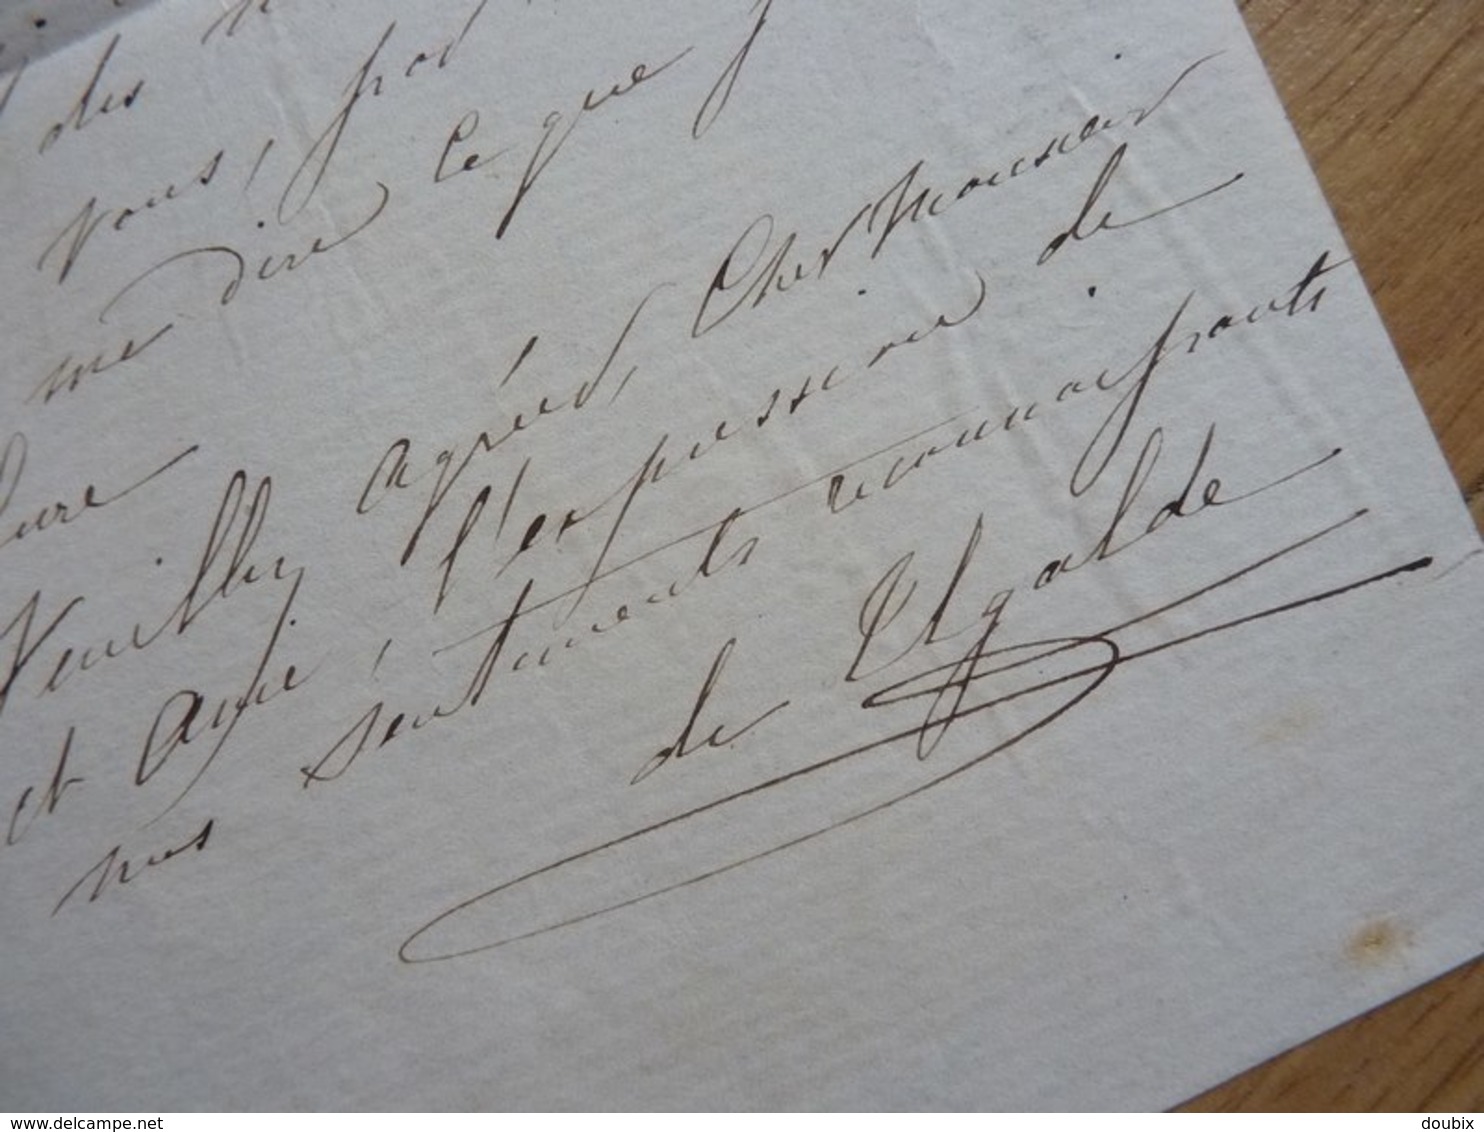 des
vous,
me dire ce que
Veuillez agréer, Cher Monsieur
et ami, l'expression de
mes sentiments reconnaissants
de Ulgalde
delcampe.net
doubix